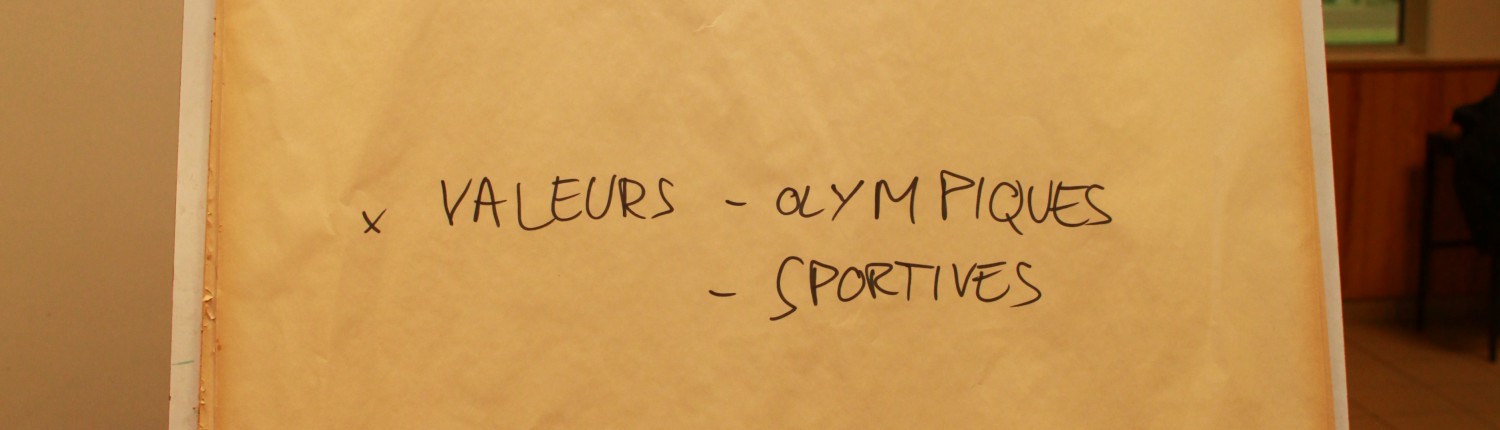 x VALEURS - OLYMPIQUES
- SPORTIVES